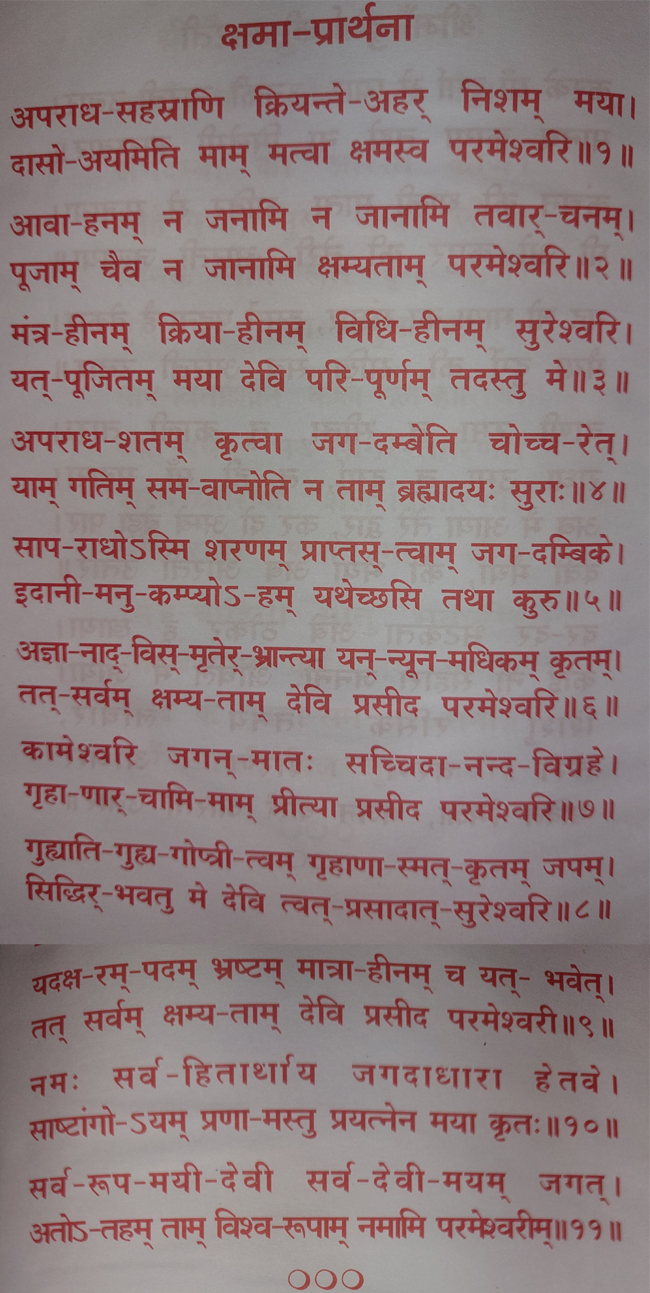 क्षमा-प्रार्थना
अपराध-सहस्राणि क्रियन्ते-अहर् निशम् मया।
दासो-अयमिति माम् मत्वा क्षमस्व परमेश्वरि॥१॥
आवा-हनम् न जनामि न जानामि तवार्-चनम्।
पूजाम् चैव न जानामि क्षम्यताम् परमेश्वरि॥२॥
मंत्र-हीनम् क्रिया-हीनम् विधि-हीनम् सुरेश्वरि।
यत्-पूजितम् मया देवि परि-पूर्णम् तदस्तु मे॥३॥
अपराध-शतम् कृत्वा जग-दम्बेति चोच्च-रेत्।
याम् गतिम् सम-वाप्नोति न ताम् ब्रह्मादयः सुराः॥४॥
साप-राधोऽस्मि शरणम् प्राप्तस्-त्वाम् जग-दम्बिके।
इदानी-मनु-कम्प्योऽ-हम् यथेच्छसि तथा कुरु॥५॥
अज्ञा-नाद्-विस्-मृतेर्-भ्रान्त्या यन्-न्यून-मधिकम् कृतम्।
तत्-सर्वम् क्षम्य-ताम् देवि प्रसीद परमेश्वरि॥६॥
कामेश्वरि जगन्-मातः सच्चिदा-नन्द-विग्रहे।
गृहा-णार्-चामि-माम् प्रीत्या प्रसीद परमेश्वरि॥७॥
गुह्याति-गुह्य-गोप्त्री-त्वम् गृहाणा-स्मत्-कृतम् जपम्।
सिद्धिर्-भवतु मे देवि त्वत्-प्रसादात्-सुरेश्वरि॥८॥
यदक्ष-रम्-पदम् भ्रष्टम् मात्रा-हीनम् च यत्- भवेत्।
तत् सर्वम् क्षम्य-ताम् देवि प्रसीद परमेश्वरी॥९॥
नमः सर्व-हितार्थाय जगदाधारा हेतवे।
साष्टांगो-ऽयम् प्रणा-मस्तु प्रयत्नेन मया कृतः॥१०॥
सर्व-रूप-मयी-देवी सर्व-देवी-मयम् जगत्।
अतोऽ-तहम् ताम् विश्व-रूपाम् नमामि परमेश्वरीम्॥११॥